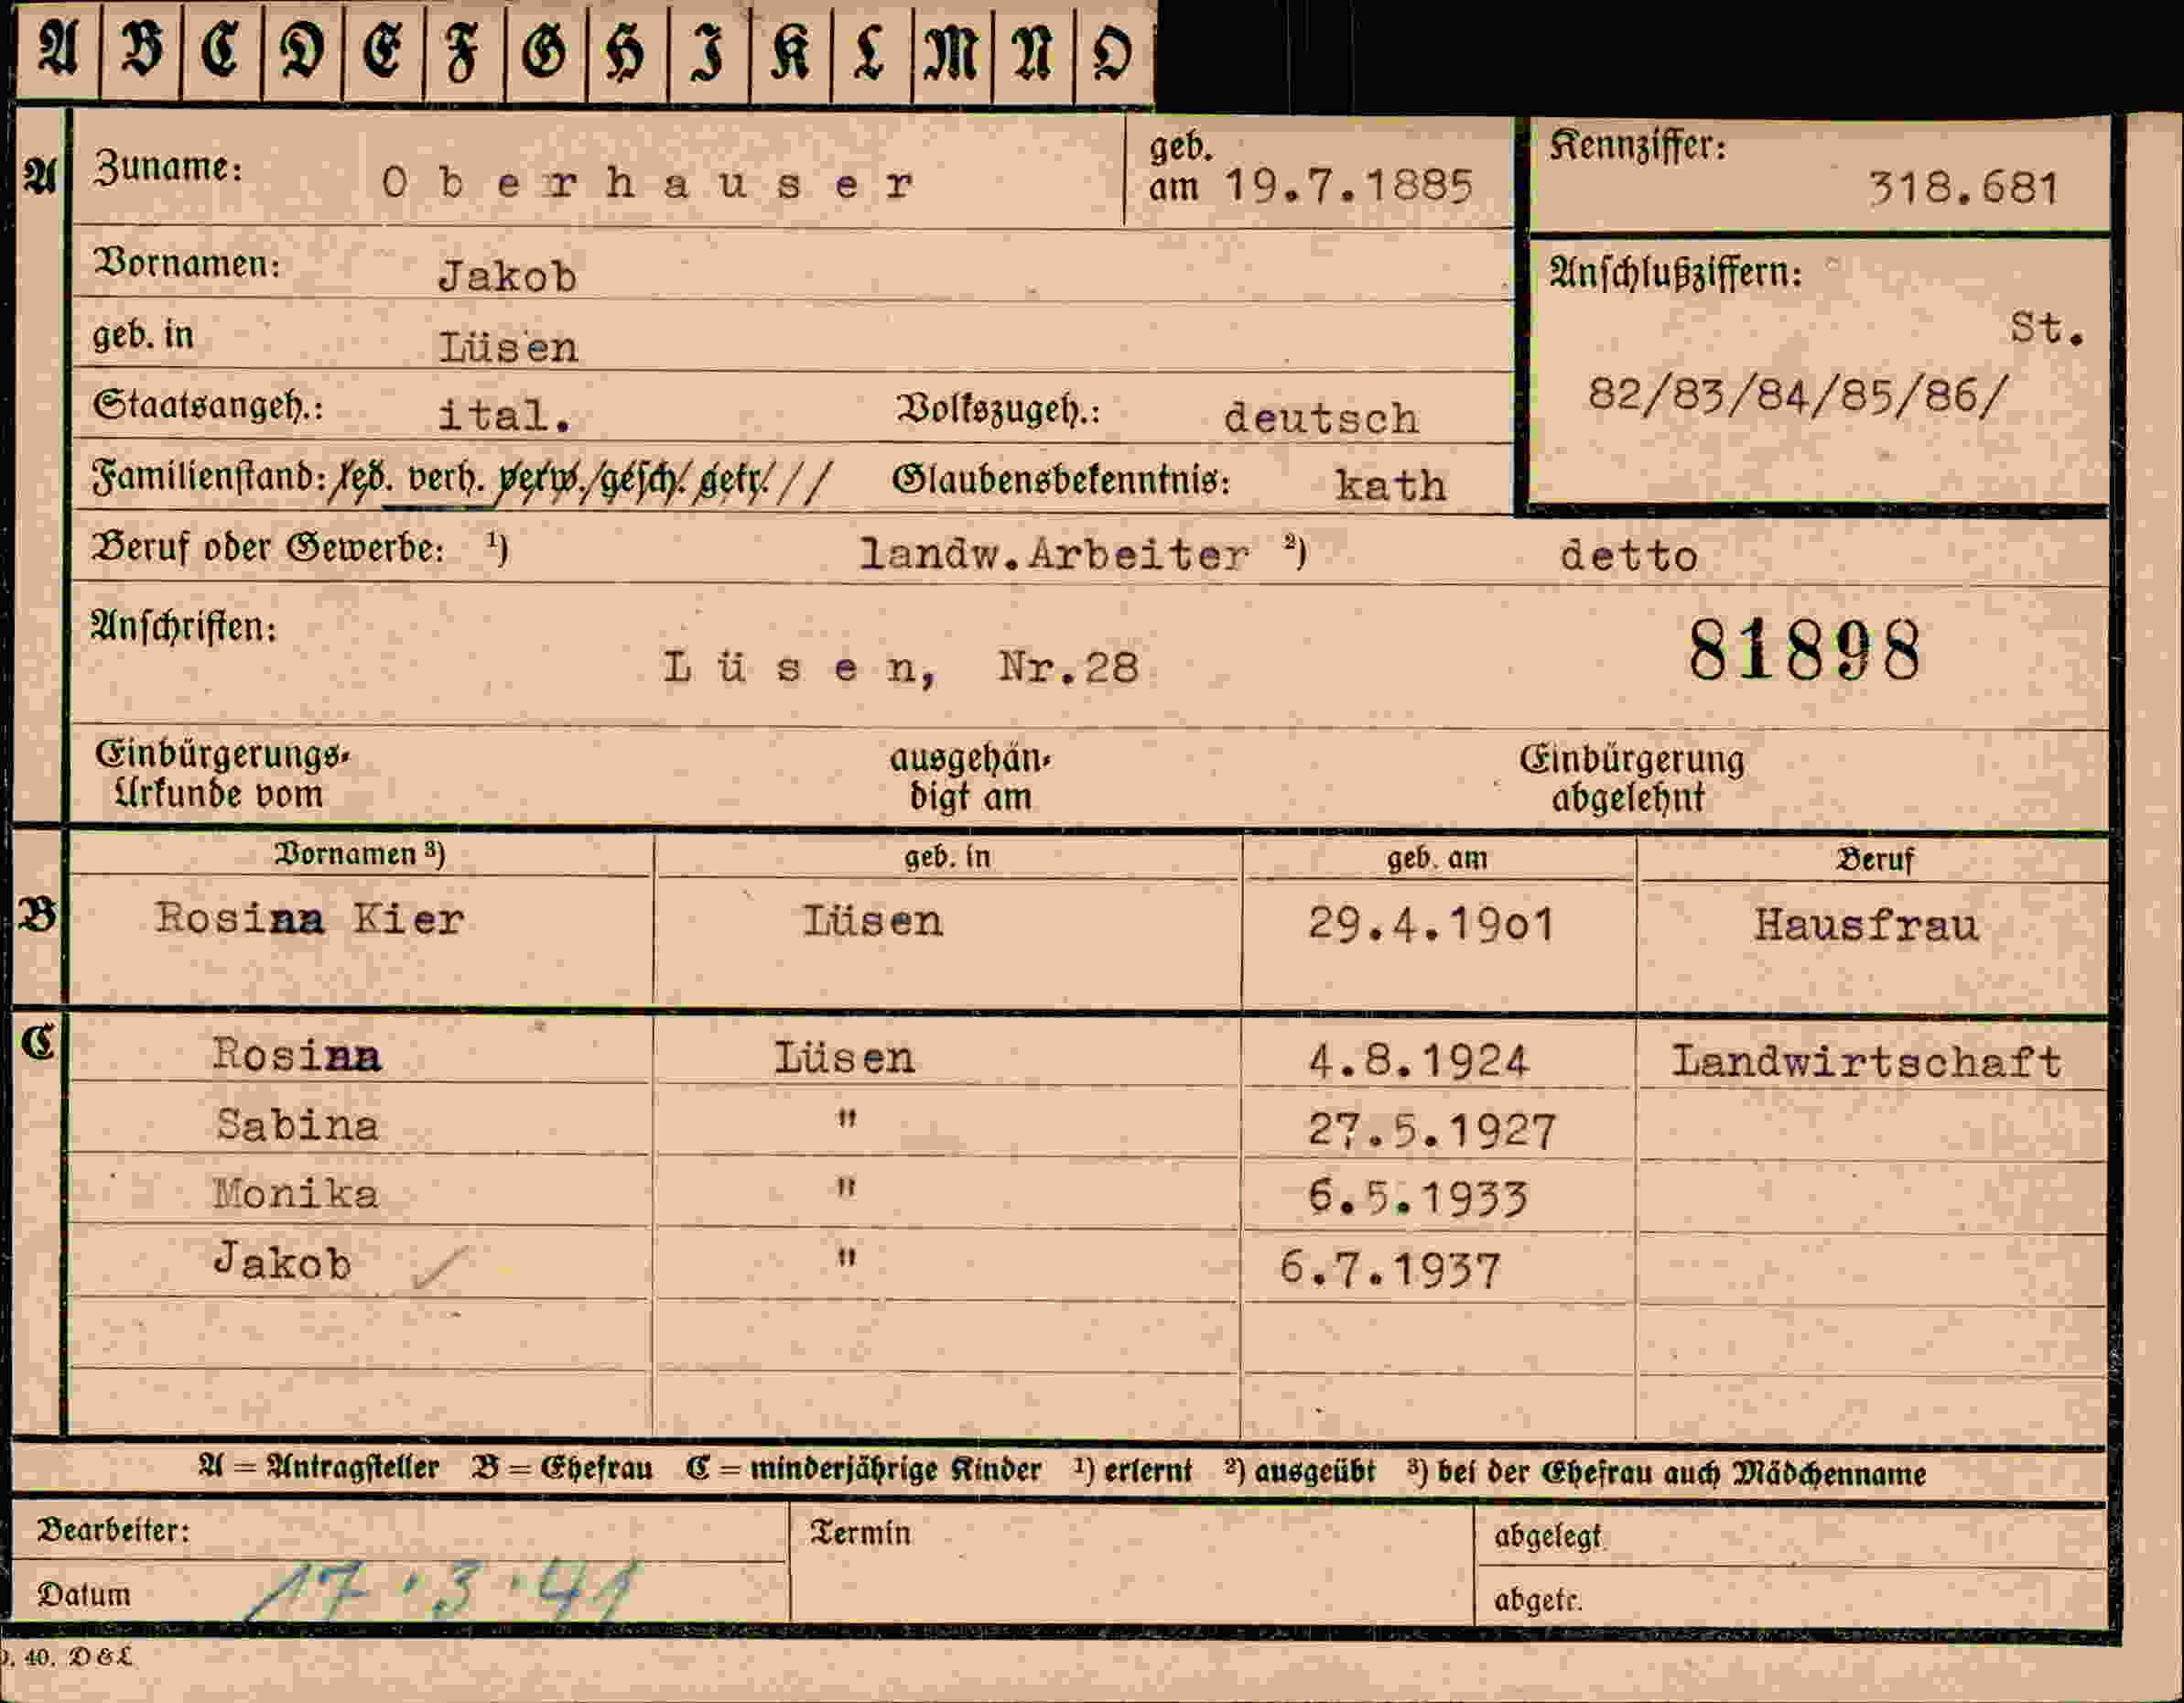 A B C D E F G H I K L M N O
A Zuname: Oberhauser geb. am 19.7.1885 Kennziffer: 318.681
Vornamen: Jakob
Anschlußziffern: St.
geb. in Lüsen
82/83/84/85/86/
Staatsangeh.: ital. Volkszugeh.: deutsch
Familienstand: led. verh. verw. gesch. getr. Glaubensbekenntnis: kath
Beruf oder Gewerbe: ¹) landw.Arbeiter ²) detto
Anschriften: Lüsen, Nr.28 81898
Einbürgerungs- ausgehän- Einbürgerung
Urkunde vom digt am abgelehnt
Vornamen ³) geb. in geb. am Beruf
B Rosina Kier Lüsen 29.4.19o1 Hausfrau
C Rosina Lüsen 4.8.1924 Landwirtschaft
Sabina " 27.5.1927
Monika " 6.5.1933
Jakob " 6.7.1937
A = Antragsteller B = Ehefrau C = minderjährige Kinder ¹) erlernt ²) ausgeübt ³) bei der Ehefrau auch Mädchenname
Bearbeiter: Termin abgelegt
Datum 17.3.41 abgetr.
40. D & L